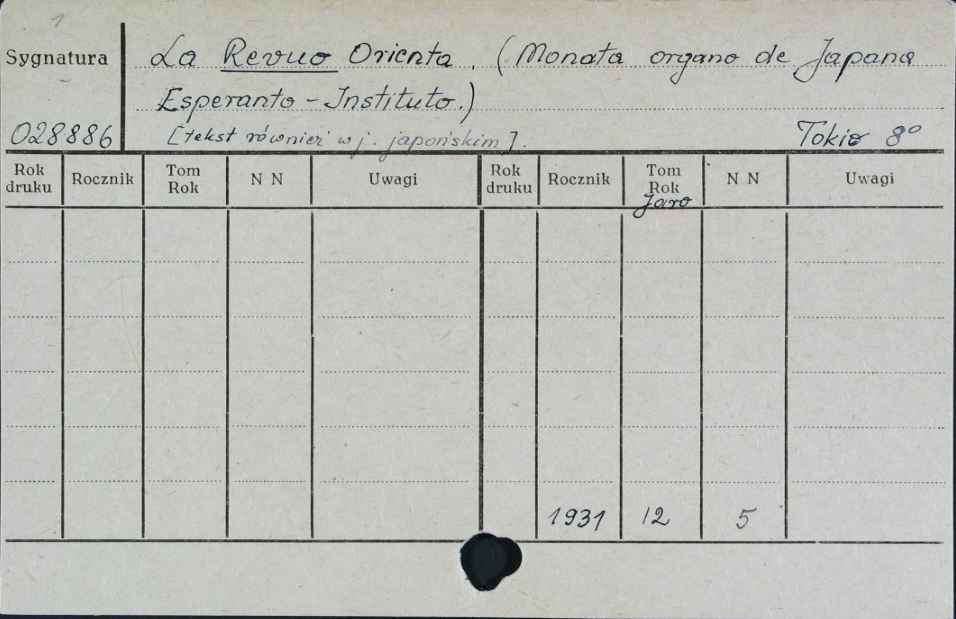 1
Sygnatura La Revuo Orienta. (Monata organo de Japana
Esperanto - Instituto.)
028886 [tekst również w j. japońskim]. Tokio 8°
Rok druku Rocznik Tom Rok N N Uwagi Rok druku Rocznik Tom Rok Jaro N N Uwagi
1931 12 5